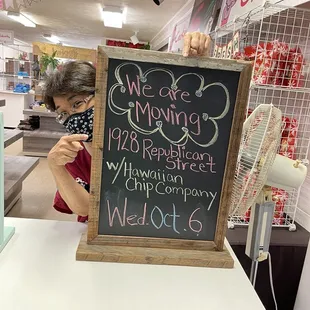 We are
Moving
1928 Republican
Street
w/Hawaiian
Chip Company
Wed. Oct. 6